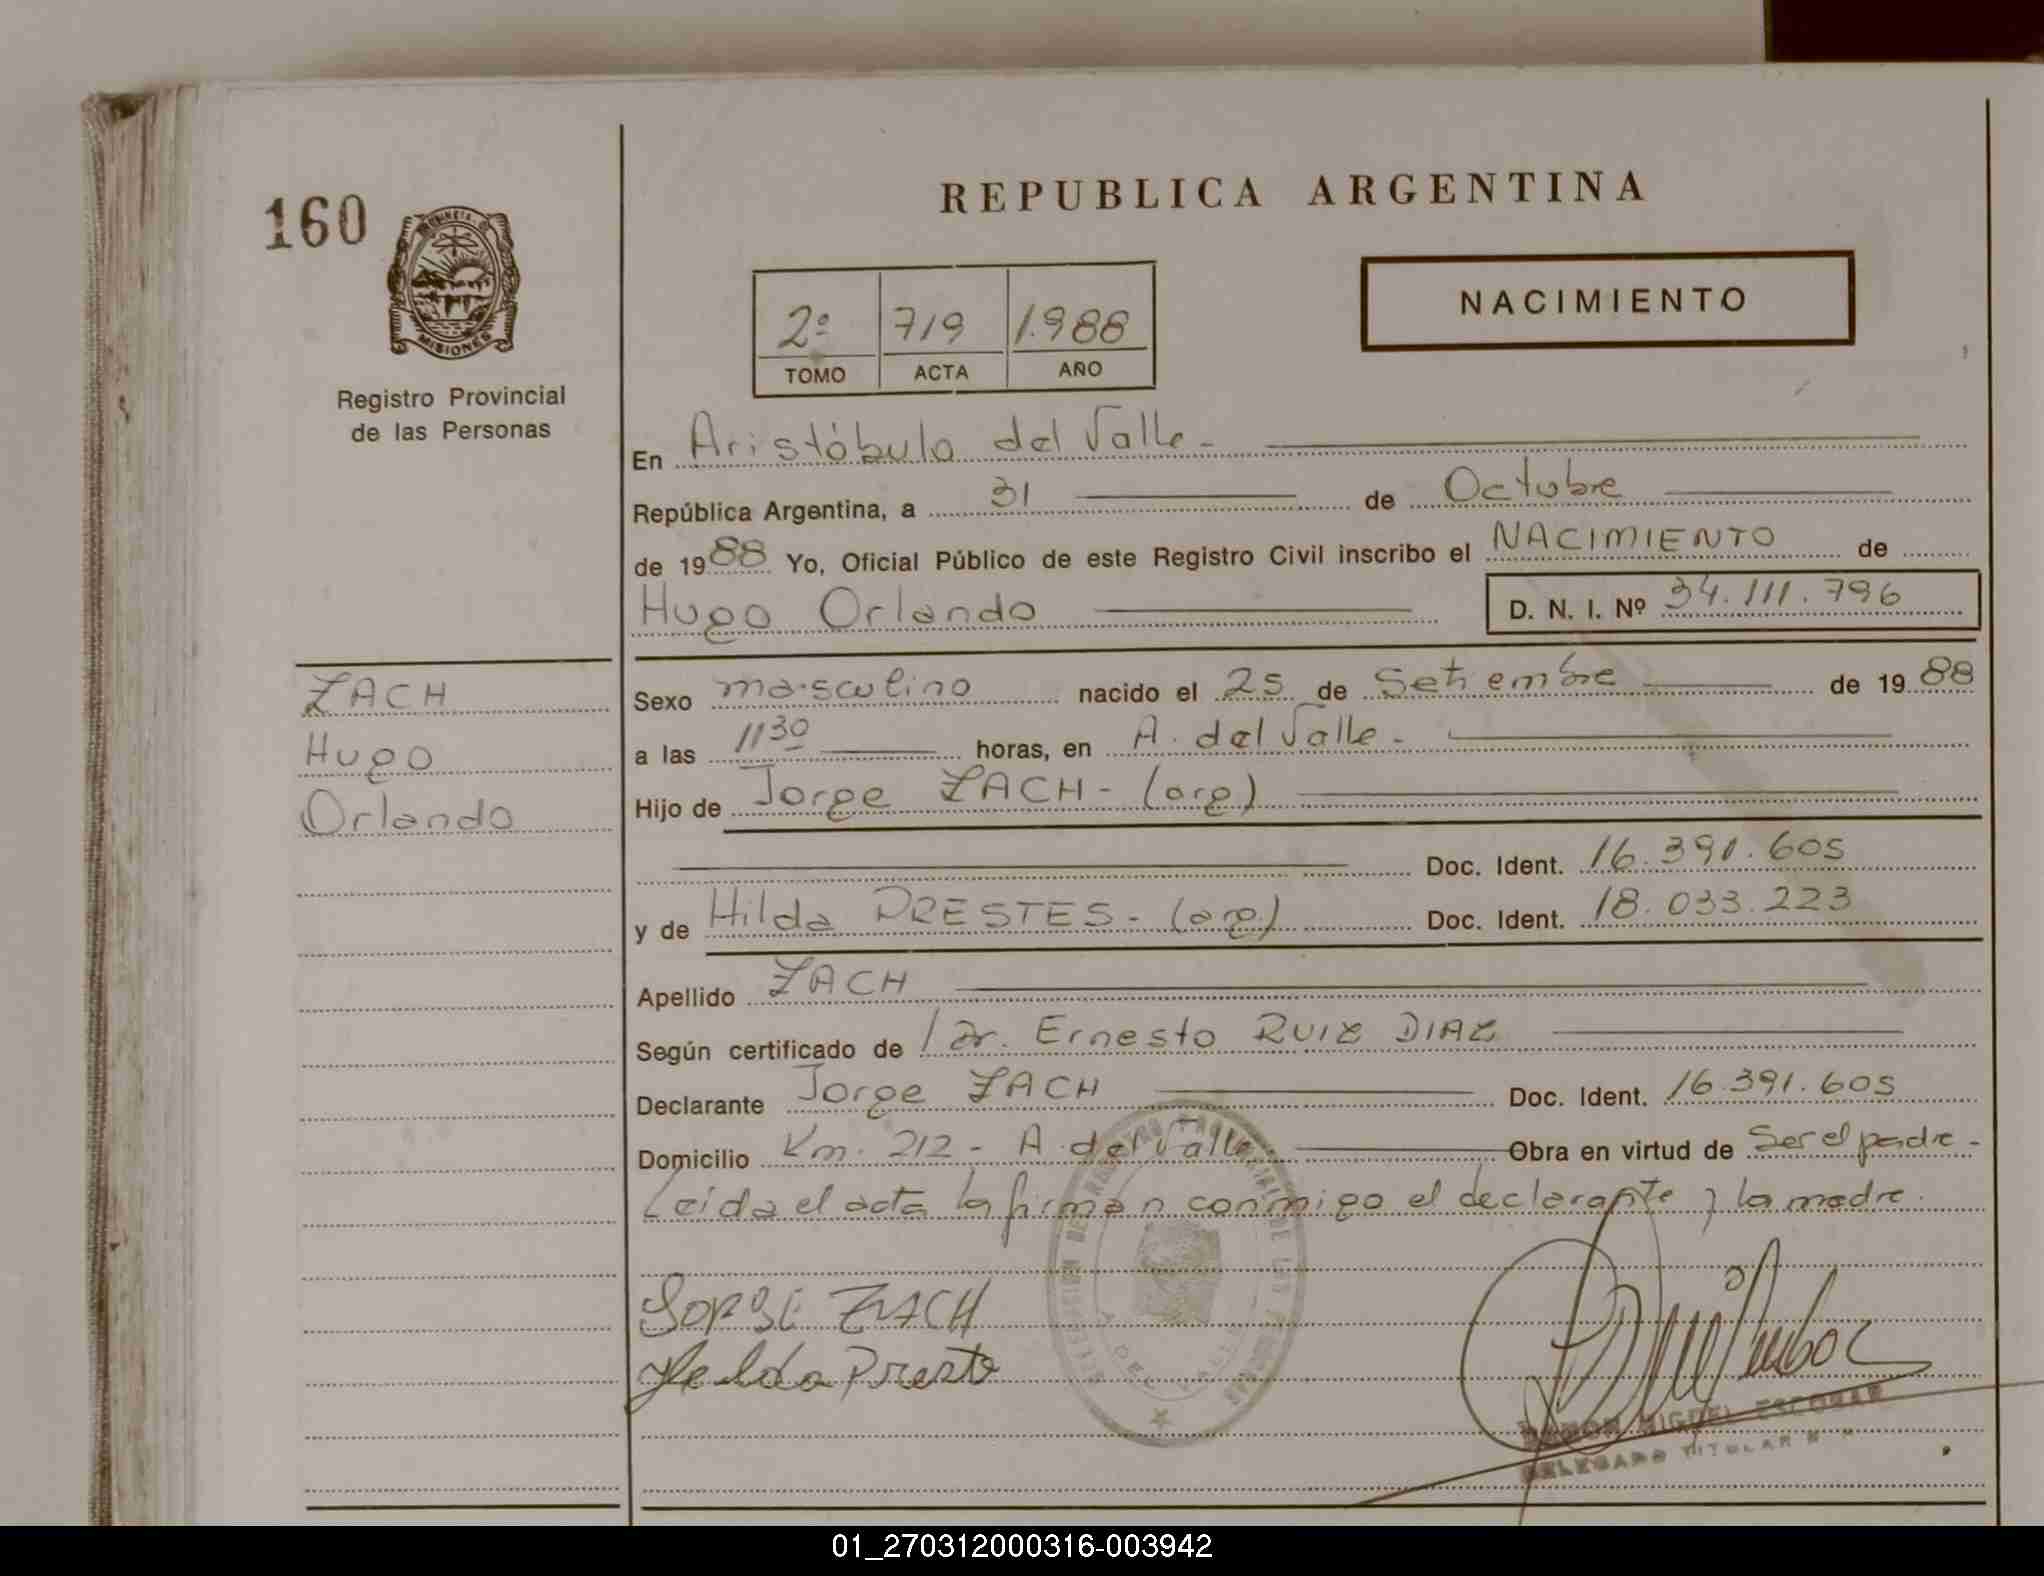 160
PROVINCIA DE
MISIONES
Registro Provincial
de las Personas
REPUBLICA ARGENTINA
2º 719 1.988
TOMO ACTA AÑO
NACIMIENTO
En Aristóbulo del Valle.-
República Argentina, a 31 de Octubre
de 1988 Yo, Oficial Público de este Registro Civil inscribo el NACIMIENTO de
Hugo Orlando D. N. I. Nº 34.111.796
ZACH
Hugo
Orlando
Sexo masculino nacido el 25 de Setiembre de 1988
a las 1130 horas, en A. del Valle.-
Hijo de Jorge ZACH- (arg)
Doc. Ident. 16.391.605
y de Hilda PRESTES.- (arg.) Doc. Ident. 18.033.223
Apellido ZACH
Según certificado de Dr. Ernesto RUIZ DIAZ
Declarante Jorge ZACH Doc. Ident. 16.391.605
Domicilio Km. 212 - A. del Valle. Obra en virtud de Ser el padre.-
Leída el acta la firman conmigo el declarante y la madre.
JORGE ZACH
RAMON MIGUEL ESCOBAR
DELEGADO TITULAR
A. DEL VALLE
01_270312000316-003942